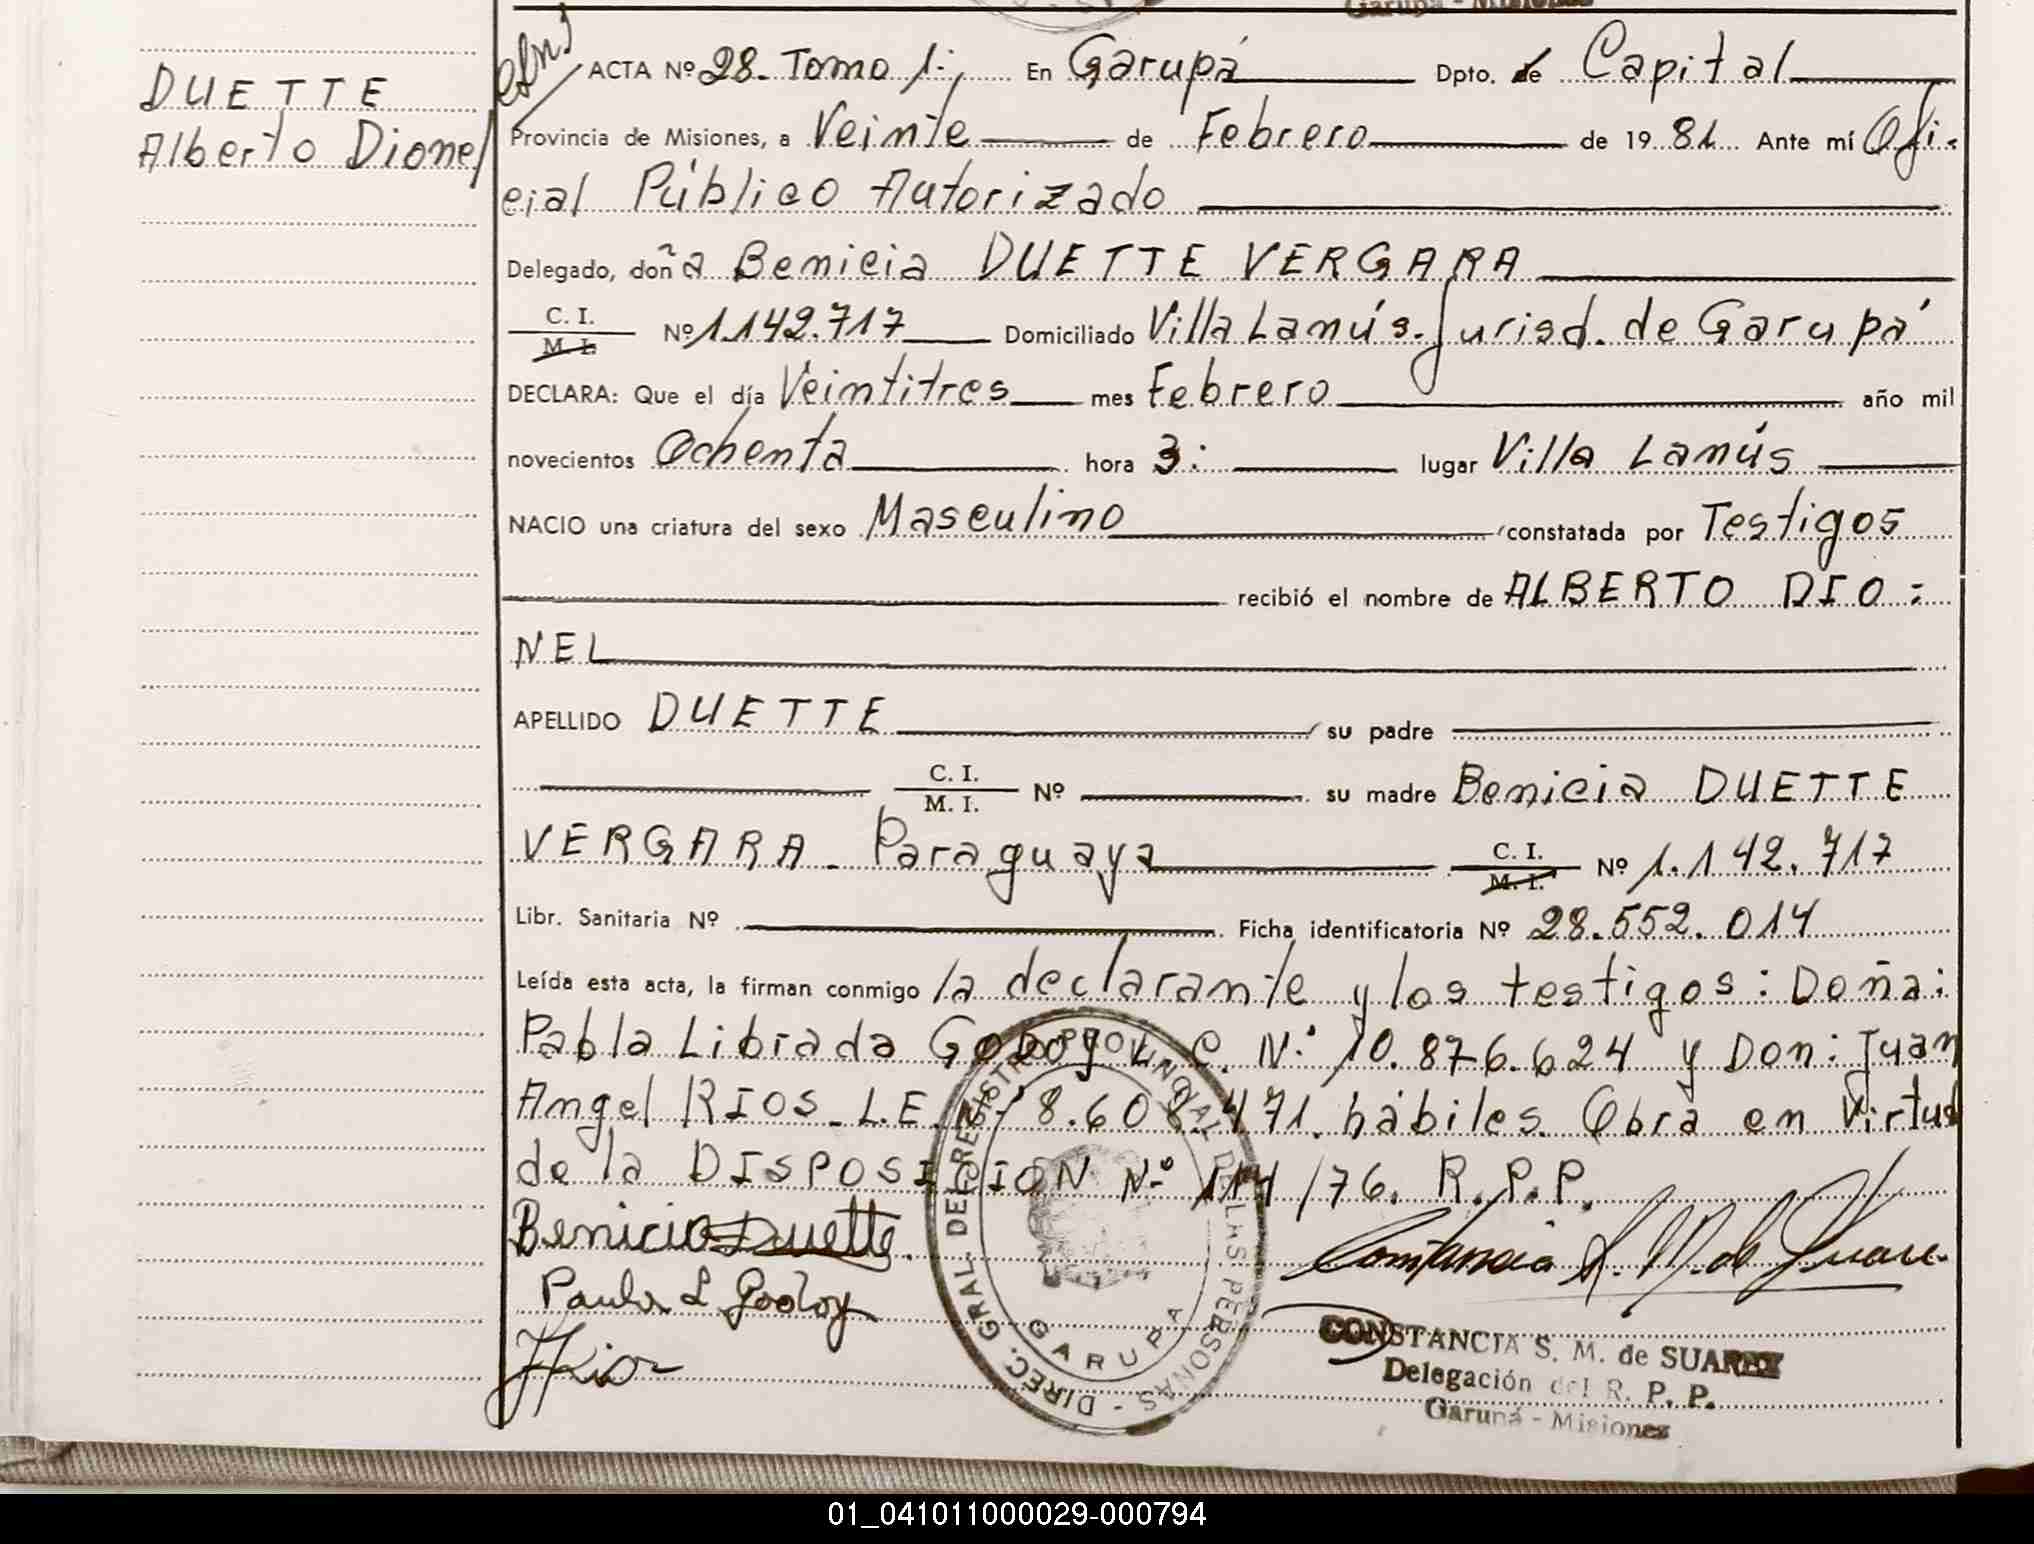 Garupá - Misiones
DUETTE
Alberto Dionel
ACTA Nº 28. Tomo 1. En Garupá Dpto. de Capital
Provincia de Misiones, a Veinte de Febrero de 1981. Ante mí Ofi-
cial Público Autorizado
Delegado, doña Benicia DUETTE VERGARA
C. I.
M. I. Nº 1.142.717 Domiciliado Villa Lanús. Jurisd. de Garupá
DECLARA: Que el día Veintitres mes Febrero año mil
novecientos Ochenta hora 3: lugar Villa Lanús
NACIO una criatura del sexo Masculino constatada por Testigos
recibió el nombre de ALBERTO DIO:
NEL
APELLIDO DUETTE su padre
C. I.
M. I. Nº su madre Benicia DUETTE
VERGARA - Paraguaya C. I.
M. I. Nº 1.142.717
Libr. Sanitaria Nº Ficha identificatoria Nº 28.552.014
Leída esta acta, la firman conmigo la declarante y los testigos: Doña:
Pabla Librada GODOY L.C. Nº 10.876.624 y Don: Juan
Angel RIOS - L.E. 8.608.471. hábiles. Obra en Virtud
de la DISPOSICION Nº 114/76. R.P.P.
Benicia Duette.
Paula L Godoy
JRios
DIREC. GRAL. DEL REGISTRO PROVINCIAL DE LAS PERSONAS - GARUPA
Constancia S. M. de Suarez
CONSTANCIA S. M. de SUAREZ
Delegación del R. P. P.
Garupá - Misiones
01_041011000029-000794